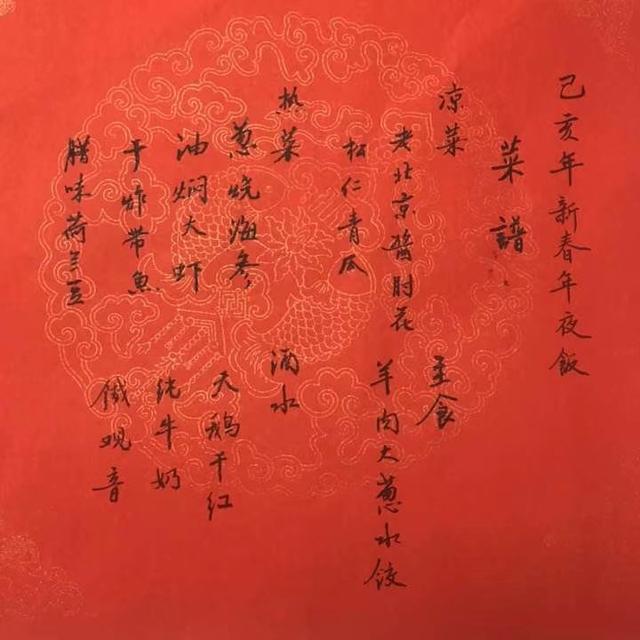 己亥年新春年夜飯
菜譜
凉菜
老北京醬肘花
松仁青瓜
热菜
葱烧海参
油焖大虾
干炸带魚
腊味荷兰豆
主食
羊肉大葱水饺
酒水
天鹅干红
纯牛奶
铁观音